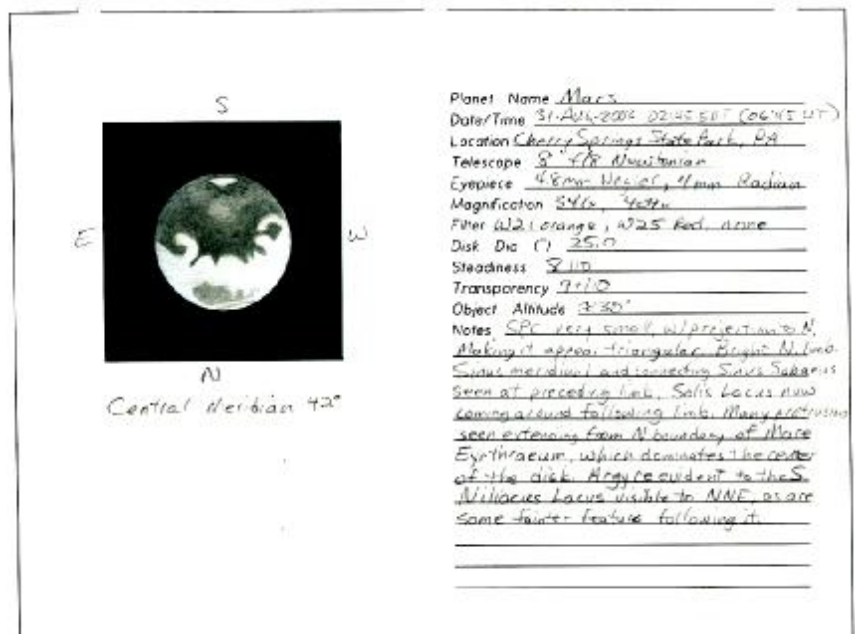 S
E
W
N
Central Meridian 42°
Planet Name Mars
Date/Time 31-AUG-2003 02:45 EDT (06:45 UT)
Location Cherry Springs State Park, PA
Telescope 8" f/8 Newtonian
Eyepiece 4.8mm Nagler, 4mm Radian
Magnification
Filter W21 orange, W25 Red, none
Disk Dia (") 25.0
Steadiness 8/10
Transparency 7/10
Object Altitude
Notes SPC very small, w/projection to N,
Making it appear triangular. Bright N. limb.
Sinus meridiani and connecting Sinus Sabaeus
seen at preceding limb. Solis Lacus now
coming around following limb. Many protrusions
seen extending from N boundary of Mare
Eyrthraeum, which dominates the center
of the disk. Argyre evident to the S.
Niliacus Lacus visible to NNE, as are
some fainter feature following it.